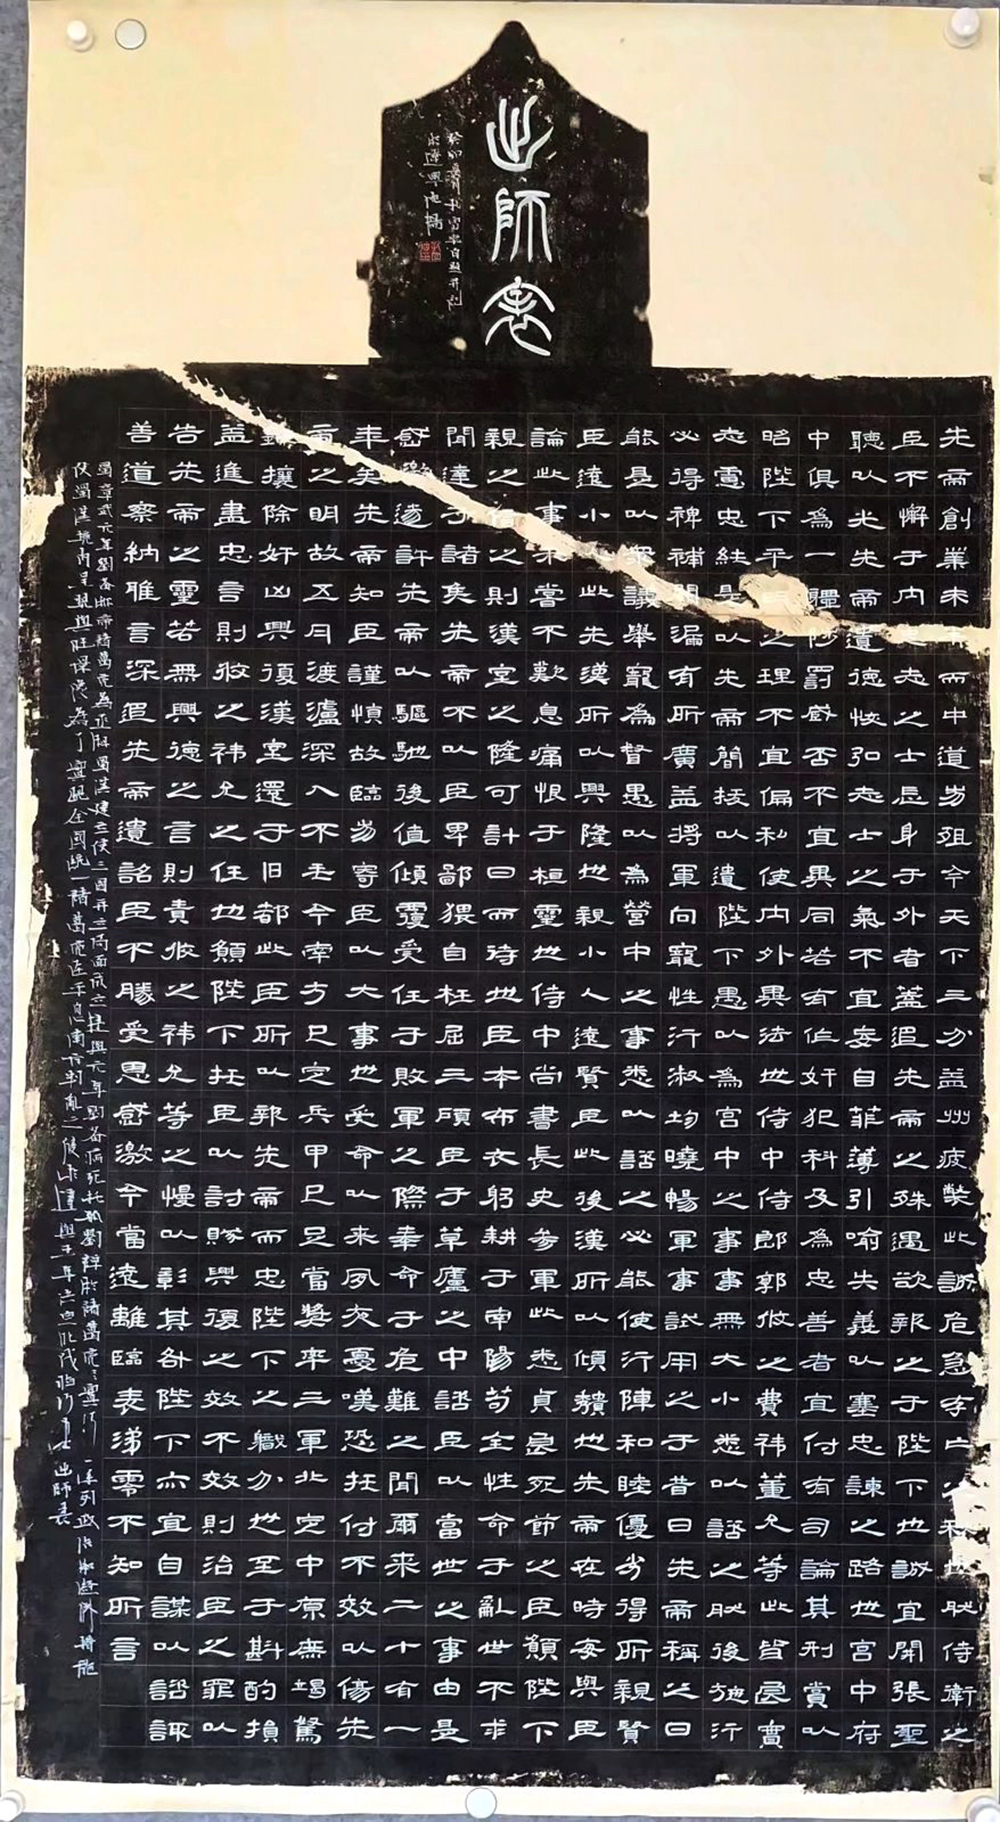 出師表
癸卯夏月 自題并記
先帝創業未半而中道崩殂今天下三分益州疲弊此誠危急存亡之秋也然侍衛之
臣不懈于内忠志之士忘身于外者蓋追先帝之殊遇欲報之于陛下也誠宜開張聖
聽以光先帝遺德恢弘志士之氣不宜妄自菲薄引喻失義以塞忠諫之路也宮中府
中俱為一體陟罰臧否不宜異同若有作奸犯科及為忠善者宜付有司論其刑賞以
昭陛下平明之理不宜偏私使内外異法也侍中侍郎郭攸之費禕董允等此皆良實
志慮忠純是以先帝簡拔以遺陛下愚以為宮中之事事無大小悉以諮之然後施行
必得裨補闕漏有所廣益將軍向寵性行淑均曉暢軍事試用之于昔日先帝稱之曰
能是以衆議舉寵為督愚以為營中之事悉以諮之必能使行陣和睦優劣得所親賢
臣遠小人此先漢所以興隆也親小人遠賢臣此後漢所以傾頹也先帝在時每與臣
論此事未嘗不歎息痛恨于桓靈也侍中尚書長史參軍此悉貞良死節之臣願陛下
親之信之則漢室之隆可計日而待也臣本布衣躬耕于南陽苟全性命于亂世不求
聞達于諸矦先帝不以臣卑鄙猥自枉屈三顧臣于草廬之中諮臣以當世之事由是
感激遂許先帝以驅馳後值傾覆受任于敗軍之際奉命于危難之間爾来二十有一
年矣先帝知臣謹慎故臨崩寄臣以大事也受命以来夙夜憂嘆恐托付不效以傷先
帝之明故五月渡瀘深入不毛今南方已定兵甲已足當獎率三軍北定中原庶竭駑
鈍攘除奸凶興復漢室還于旧都此臣所以報先帝而忠陛下之職分也至于斟酌損
益進盡忠言則攸之禕允之任也願陛下托臣以討賊興復之效不效則治臣之罪以
告先帝之靈若無興德之言則責攸之禕允等之慢以彰其咎陛下亦宜自謀以諮諏
善道察納雅言深追先帝遺詔臣不勝受恩感激今當遠離臨表涕零不知所言
蜀章武元年劉备称帝諸葛亮為丞相蜀漢建立使三国鼎立局面成立建興元年劉备病死托孤劉禪於諸葛亮亮實行一系列政治
使蜀漢境内呈現興旺 為了實現全国統一諸葛亮在平息南方判乱之後於建興五年 北伐 出師表